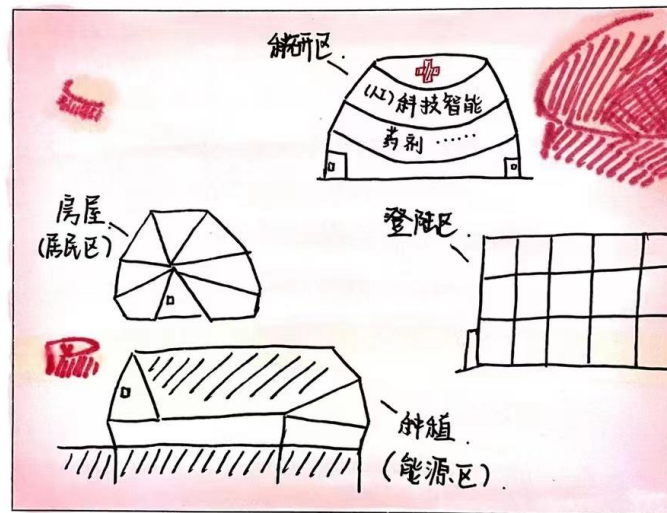 科研区
(AI)科技智能
药剂……
房屋
(居民区)
登陆区
种植
(能源区)